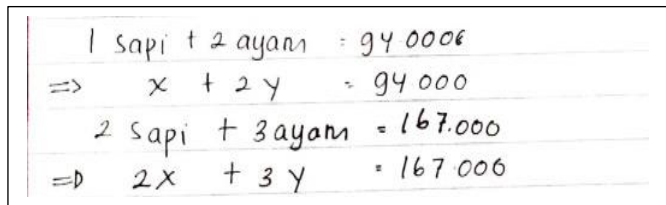 1 sapi + 2 ayam = 94 000
=> x + 2y = 94 000
2 sapi + 3 ayam = 167.000
=> 2x + 3y = 167 000